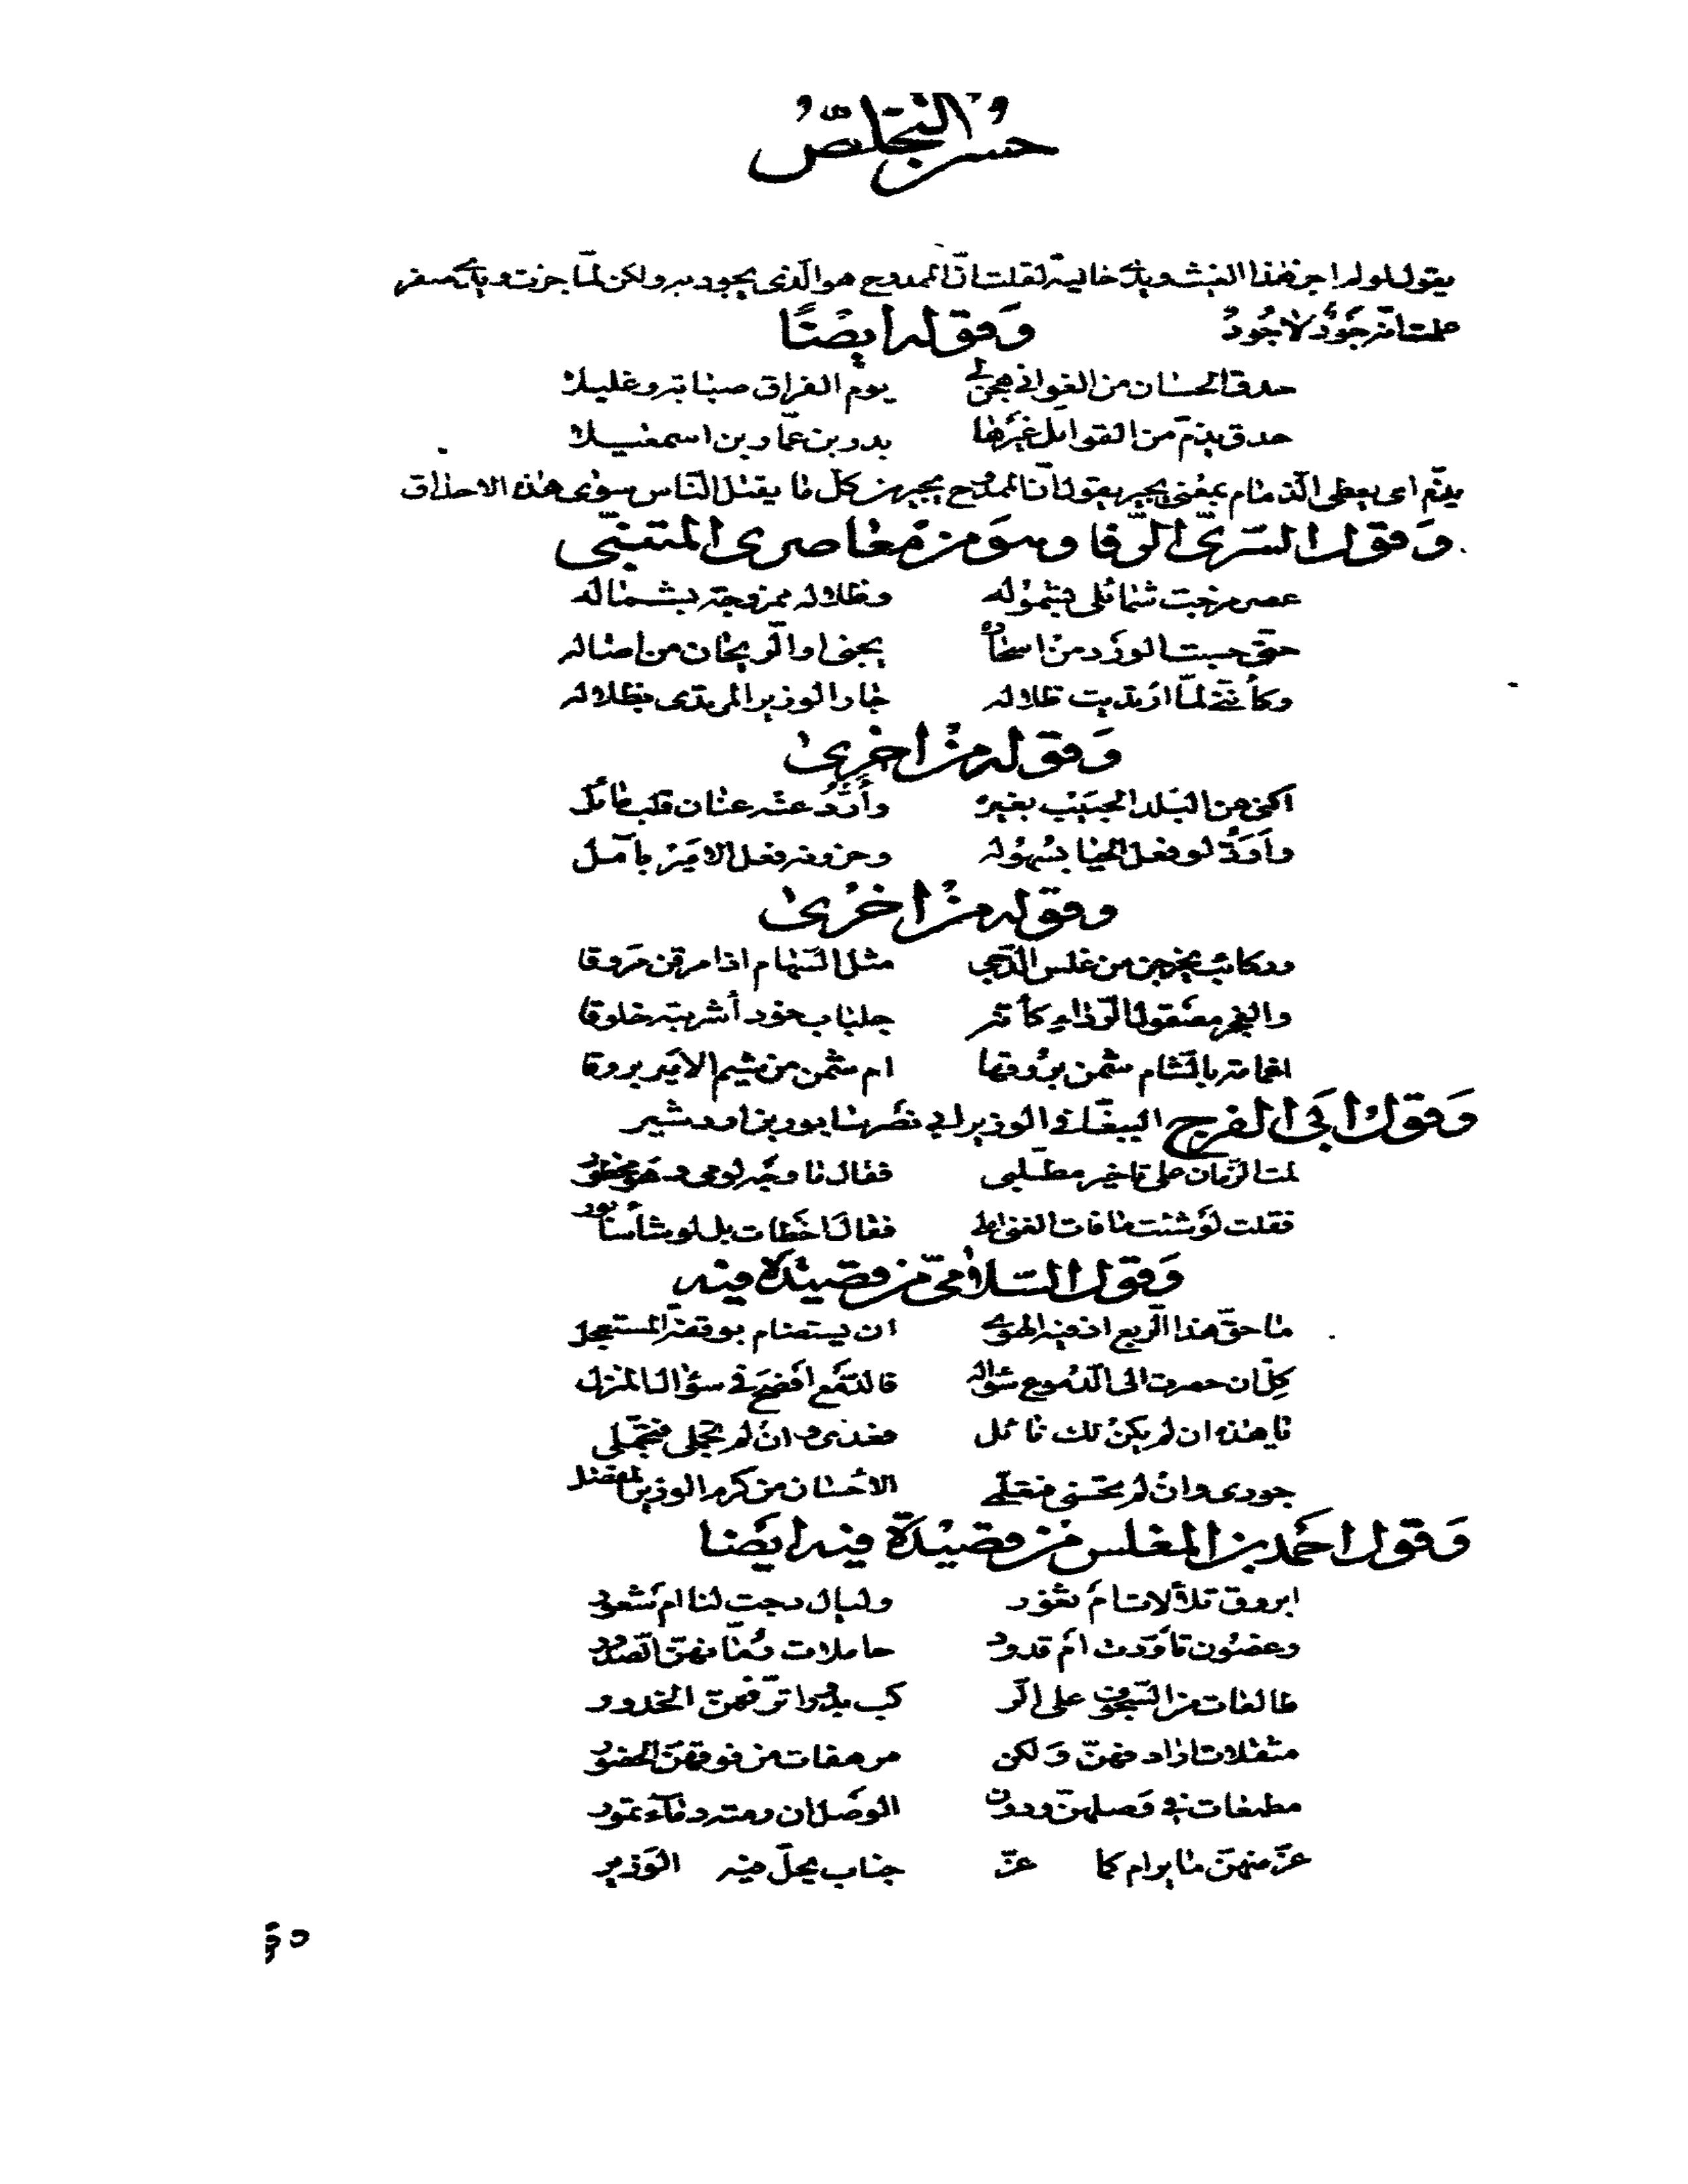 حسن التخلص
يقول لو لم اجز هذا الغيث ويدي خالية لقلت ان الممدوح هو الذي يجود به ولكن لما جزت ويدي صفر
علمت انه جَوْدٌ لا جُودُ وَقوله ايضًا
حدق الحسان من الغواني هجن لي يوم الفراق صبابة وغليلا
حدق يذمّ من القواتل غيرها بدر بن عمّار بن اسمعيلا
يذمّ اى يعطى الذمام بمعنى يجير يقول انّ الممدوح يجير من كلّ ما يقتل النّاس سوى هذه الاحداق
وَقول السّرىّ الرّفا وهو من معاصرى المتنبّى
عصر مزجت شمائلى بشموله وظلاله ممزوجة بشماله
حتّى حسبت الورد من يجنى او الرّيحان من اصاله
وكأنّنى لمّا ارتديت ظلاله جار الوزير المرتدى بظلاله
وَقوله من اخرى
اكنى عن البلد الحبيب بغيره وأردّ عنه عنان قلب مائل
وأودّ لو فعل الحيا بسهوله وحزونه فعل الامير بآمل
وقوله من اخرى
وركائب يخرجن من غلس الدّجى مثل السّهام اذا مرقن مروقا
والفجر مصقول الرّداء كأنّه جلباب خود أشربته خلوقا
اغمامة بالشّام شمن بروقها ام شمن من شيم الامير بروقا
وَقول ابى الفرج الببغا فى الوزير ابي نصر سابور بن اردشير
لمت الزّمان على تاخير مطلبى فقال ما وجه لومى وهو محظور
فقلت لو شئت ما فات الغنى املى فقال اخطات بل لو شاء سابور
وَقول السّلامىّ من قصيدة فيه
ما حقّ هذا الرّبع اذ فيه الهوى ان يستضام بوقفة المستعجل
كِلْ ان حصرت الى الدّموع سؤاله فالدّمع أفصح فى سؤال المنزل
يا هذه ان لم يكن لك نائل فعدى وان لم تجملى فتجمّلى
جودى وان لم تحسنى فتعلّمى الاحسان من كرم الوزير المفضل
وَقول احمد بن المغلس من قصيدة فيه ايضا
ابروق تلألات ام ثغور وليال دجت لنا ام شعور
وغصون تأوّدت ام قدود حاملات رمّانهنّ الصّدور
طالعات من السّجوف على الرّ كب بدورا ترفهنّ الخدور
مثقلات اردافهنّ وَلكن مرهفات من فوقهنّ الخصور
مطمعات فى وصلهنّ ودون الوصل ان رمته دماء تمور
عزّ منهنّ ما يرام كما عزّ جناب يحلّ فيه الوزير